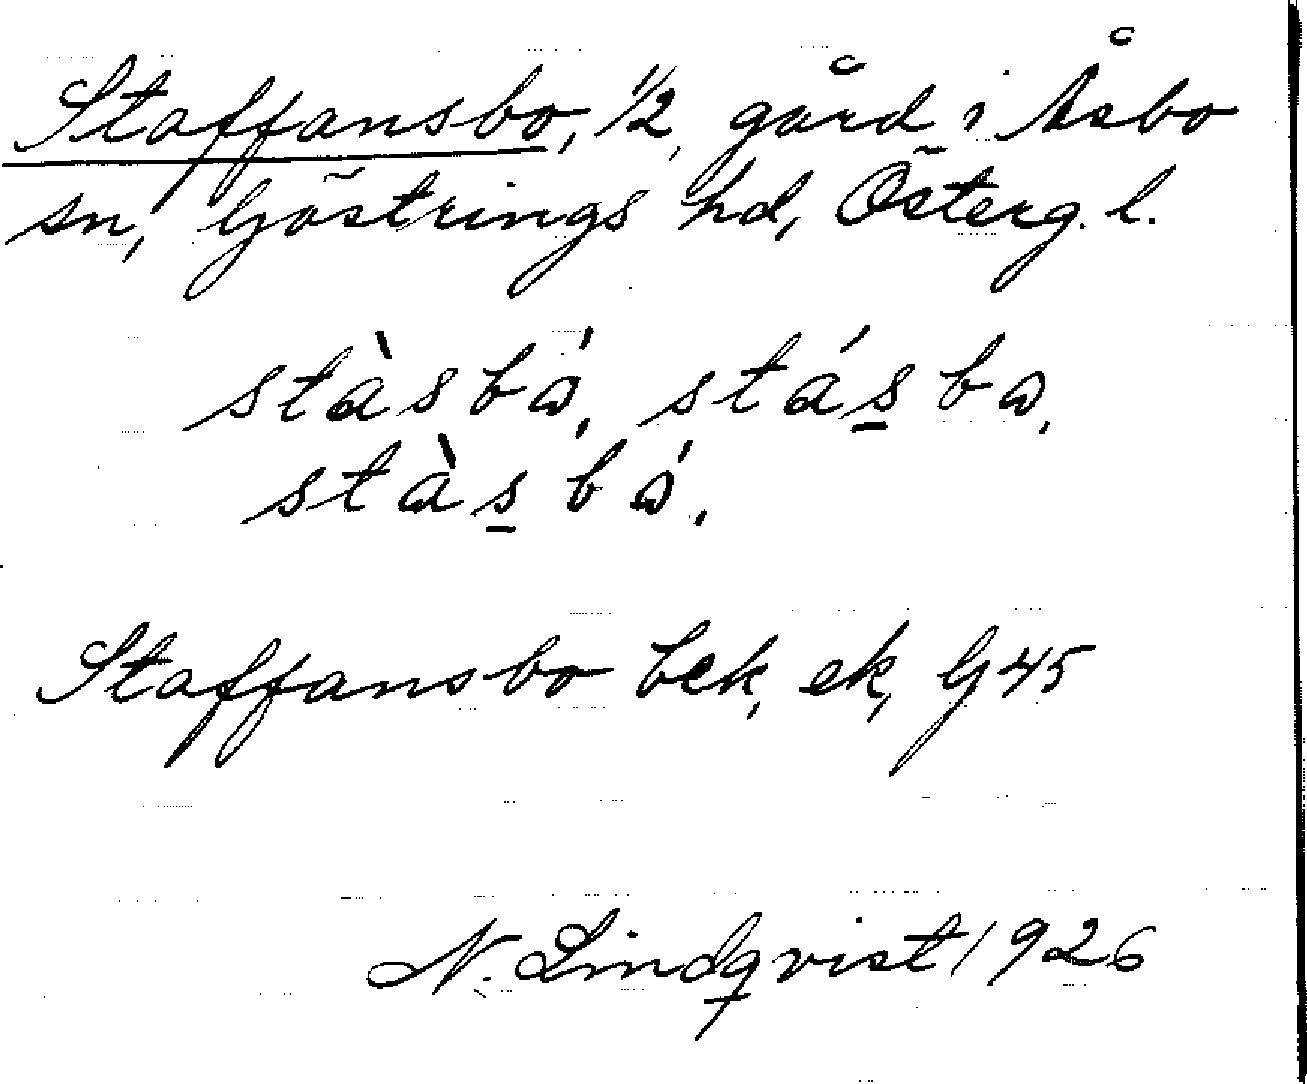 Staffansbo, 1/2, gård i Åsbo
sn, Göstrings hd, Österg. l.
stàsbó, stás̱bo,
stàs̱bó.
Staffansbo bek, ek, G 45
N. Lindqvist 1926